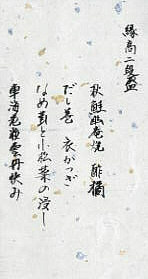 縁高二段盛
秋鮭幽庵焼 酢橘
だし巻 衣かつぎ
なめ茸と小松菜の浸し
車海老 雲丹